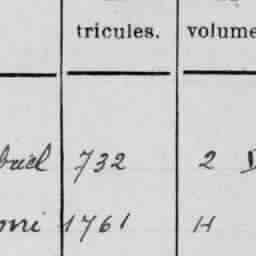 tricules. volume
briel 732 2 D
oni 1761 H